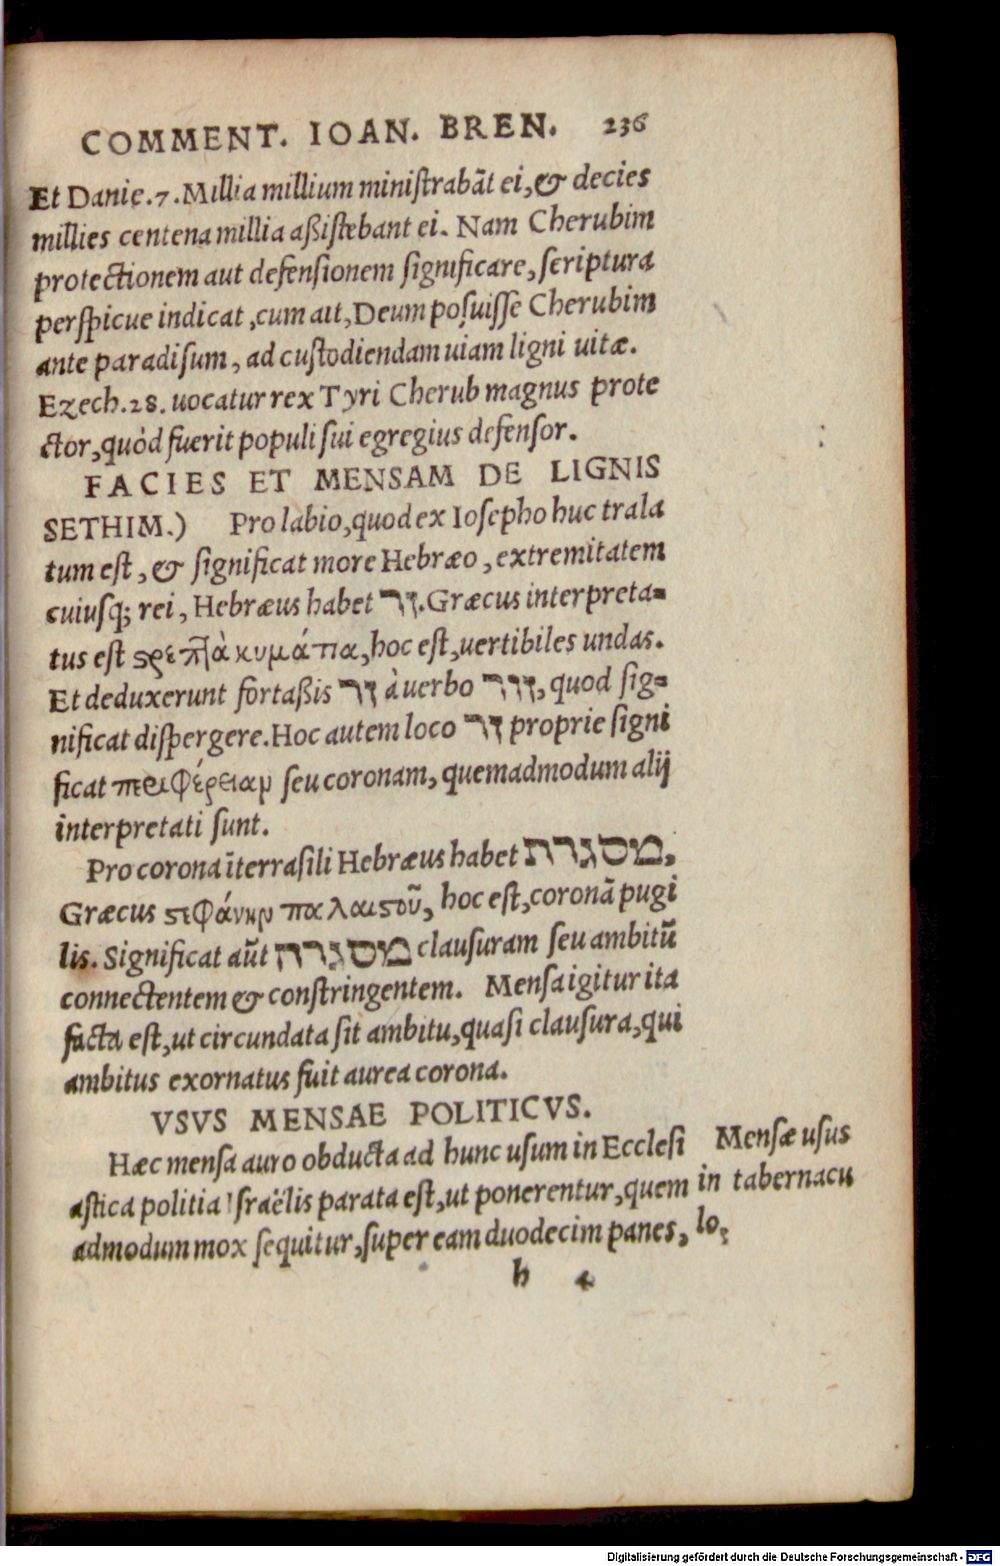 COMMENT. IOAN. BREN. 236
Et Danie.7.Millia millium ministrabāt ei,& decies
millies centena millia aßistebant ei. Nam Cherubim
protectionem aut defensionem significare, scriptura
perspicue indicat, cum ait, Deum posuisse Cherubim
ante paradisum, ad custodiendam uiam ligni uitæ.
Ezech.28. uocatur rex Tyri Cherub magnus prote
ctor, quòd fuerit populi sui egregius defensor.
FACIES ET MENSAM DE LIGNIS
SETHIM.) Pro labio, quod ex Iosepho huc trala
tum est, & significat more Hebræo, extremitatem
cuiusq; rei, Hebræus habet זר. Græcus interpreta=
tus est ϛρεπτὰ κυμάτια, hoc est, uertibiles undas.
Et deduxerunt fortaßis זר à uerbo זרר, quod sig=
nificat dispergere. Hoc autem loco זר proprie signi
ficat περιφέρειαν seu coronam, quemadmodum alij
interpretati sunt.
Pro corona īterrasili Hebræus habet מסגרת,
Græcus ϛεφάνην παλαιϛοῦ, hoc est, coronā pugi
lis. Significat aūt מסגרת clausuram seu ambitū
connectentem & constringentem. Mensa igitur ita
facta est, ut circundata sit ambitu, quasi clausura, qui
ambitus exornatus fuit aurea corona.
VSVS MENSAE POLITICVS.
Hæc mensa auro obducta ad hunc usum in Ecclesi
astica politia Israëlis parata est, ut ponerentur, quem
admodum mox sequitur, super eam duodecim panes,
Mensæ usus
in tabernacu
lo.
h 4
Digitalisierung gefördert durch die Deutsche Forschungsgemeinschaft - DFG